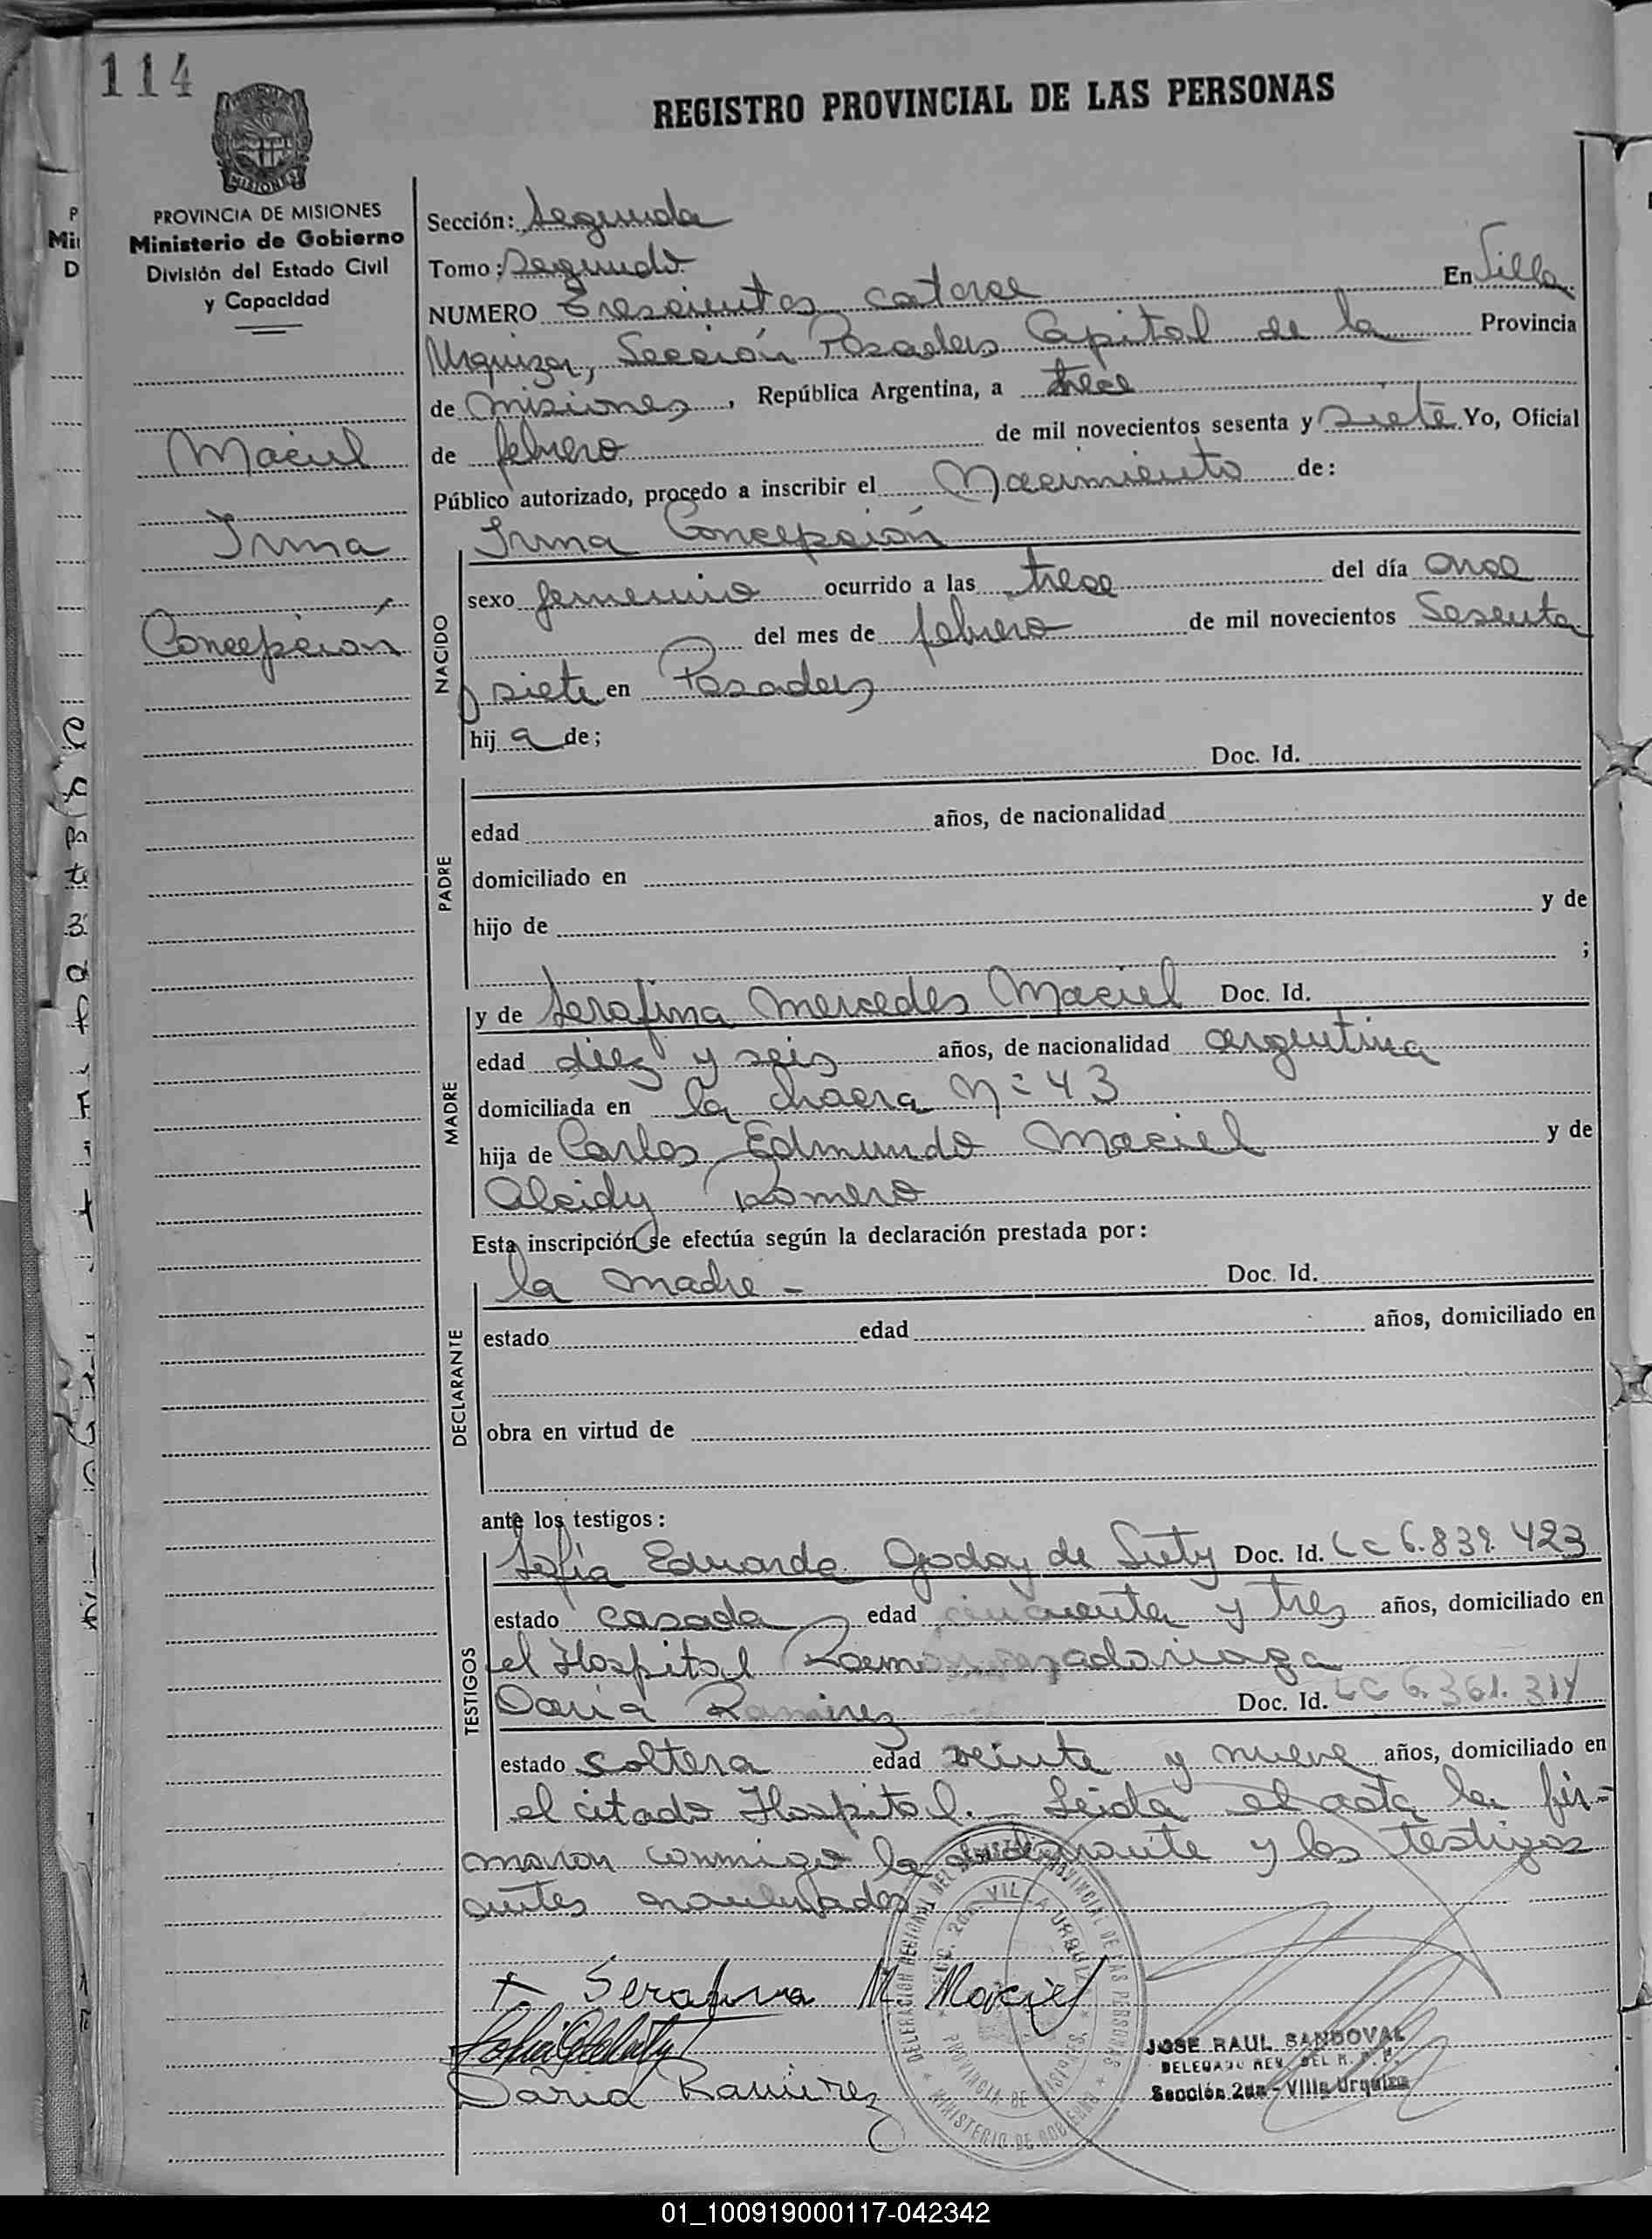 114
REGISTRO PROVINCIAL DE LAS PERSONAS
MISIONES
PROVINCIA DE MISIONES
Ministerio de Gobierno
División del Estado Civil
y Capacidad
Maciel
Irma
Concepción
Sección: Segunda
Tomo: Segundo
NUMERO Trescientos catorce En Villa
Urquiza, Sección Posadas Capital de la Provincia
de Misiones, República Argentina, a trece
de febrero de mil novecientos sesenta y siete Yo, Oficial
Público autorizado, procedo a inscribir el Nacimiento de:
NACIDO
Irma Concepción
sexo femenino ocurrido a las trece del día once
del mes de febrero de mil novecientos Sesenta
y siete en Posadas
hij a de;
PADRE
Doc. Id.
edad años, de nacionalidad
domiciliado en
hijo de y de
;
MADRE
y de Serafina Mercedes Maciel Doc. Id.
edad diez y seis años, de nacionalidad argentina
domiciliada en la chacra Nº 43
hija de Carlos Edmundo Maciel y de
Alcidy Romero
Esta inscripción se efectúa según la declaración prestada por:
DECLARANTE
la madre - Doc. Id.
estado edad años, domiciliado en
obra en virtud de
ante los testigos:
TESTIGOS
Sofia Eduarda Godoy de Doc. Id. LC 6.839.423
estado casada edad cincuenta y tres años, domiciliado en
el Hospital Ramon Madariaga
Daria Ramirez Doc. Id. LC 6.361.314
estado soltera edad veinte y nueve años, domiciliado en
el citado Hospital.- Leida el acta la fir=
maron conmigo la declarante y los testigos
antes
+ Serafina M Maciel
Daria Ramirez
DELEGACION REGIONAL DEL REGISTRO PROVINCIAL DE LAS PERSONAS
SECC. 2da. VILLA URQUIZA
PROVINCIA DE MISIONES
MINISTERIO DE GOBIERNO
JOSE RAUL SANDOVAL
DELEGADO REG. DEL R. P. P.
Sección 2da - Villa Urquiza
01_100919000117-042342